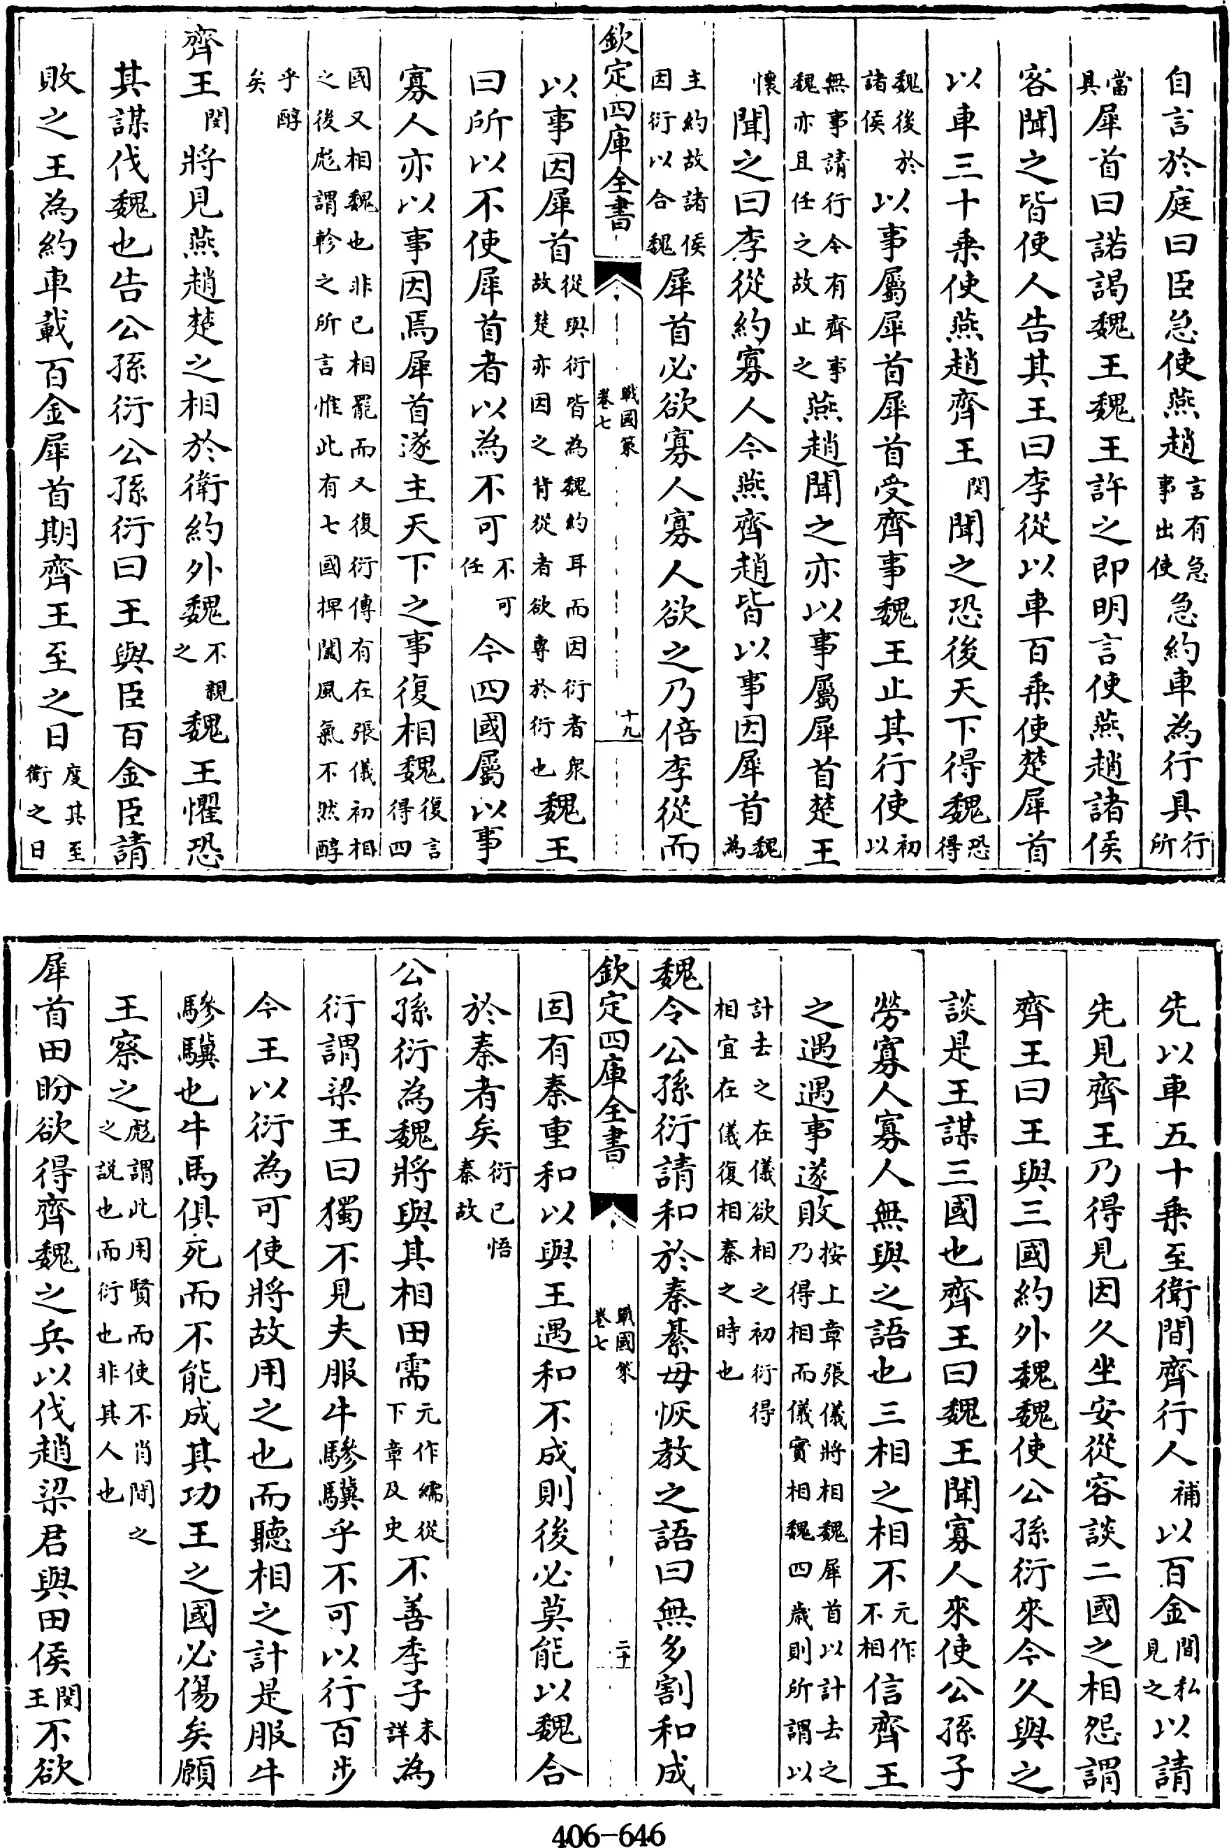 自言於庭曰臣急使燕趙言有急事出使急約車為行具行所
當具犀首曰諾謁魏王魏王許之即明言使燕趙諸侯
客聞之皆使人告其王曰李從以車百乗使楚犀首
以車三十乗使燕趙齊王閔聞之恐後天下得魏恐得
魏後於諸侯以事屬犀首犀首受齊事魏王止其行使初以
無事請行今有齊事魏亦且任之故止之燕趙聞之亦以事屬犀首楚王
懷聞之曰李從約寡人今燕齊趙皆以事因犀首魏為
主約故諸侯因衍以合魏犀首必欲寡人寡人欲之乃倍李從而
欽定四庫全書 戰國策卷七 十九
以事因犀首從與衍皆為魏約耳而因衍者衆故楚亦因之背從者欲專於衍也魏王
曰所以不使犀首者以為不可不可任今四國屬以事
寡人亦以事因焉犀首遂主天下之事復相魏復言得四
國又相魏也非已相罷而又復衍傳有在張儀初相之後彪謂軫之所言惟此有七國捭闔風氣不然醇
乎醇矣
齊王閔將見燕趙楚之相於衛約外魏不親之魏王懼恐
其謀伐魏也告公孫衍公孫衍曰王與臣百金臣請
敗之王為約車載百金犀首期齊王至之日度其至衛之日
先以車五十乗至衛間齊行人補以百金間私見之以請
先見齊王乃得見因久坐安從容談二國之相怨謂
齊王曰王與三國約外魏魏使公孫衍來今久與之
談是王謀三國也齊王曰魏王聞寡人來使公孫子
勞寡人寡人無與之語也三相之相不元作不相信齊王
之遇遇事遂敗按上章張儀將相魏犀首以計去之乃得相而儀實相魏四歲則所謂以
計去之在儀欲相之初衍得相宜在儀復相秦之時也
魏令公孫衍請和於秦綦毋恢教之語曰無多割和成
欽定四庫全書 戰國策卷七 二十
固有秦重和以與王遇和不成則後必莫能以魏合
於秦者矣衍已悟秦故
公孫衍為魏將與其相田需元作繻從下章及史不善季子未詳為
衍謂梁王曰獨不見夫服牛驂驥乎不可以行百步
今王以衍為可使將故用之也而聽相之計是服牛
驂驥也牛馬俱死而不能成其功王之國必傷矣願
王察之彪謂此用賢而使不肖間之之説也而衍也非其人也
犀首田盼欲得齊魏之兵以伐趙梁君與田侯閔王不欲
406-646